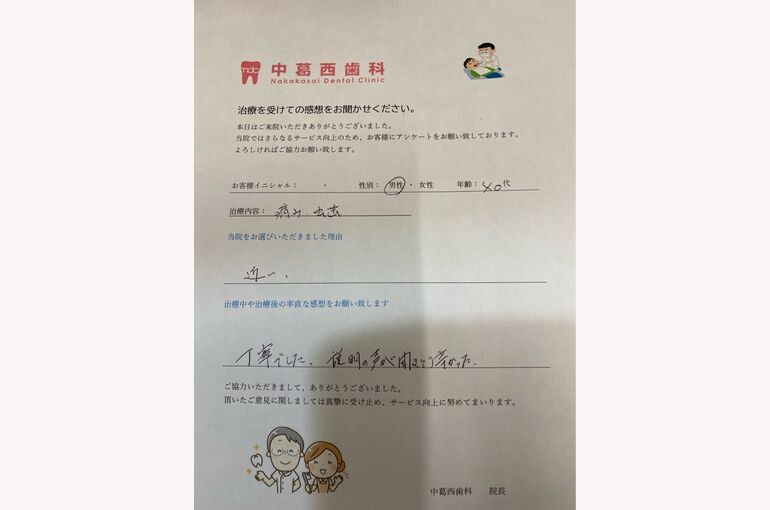 mdc
中葛西歯科
Nakakasai Dental Clinic
治療を受けての感想をお聞かせください。
本日はご来院いただきありがとうございました。
当院ではさらなるサービス向上のため、お客様にアンケートをお願い致しております。
よろしければご協力お願い致します。
お客様イニシャル： ・ 性別： 男性 ・ 女性 年齢： 40代
治療内容： 痛み 虫歯
当院をお選びいただきました理由
近い、
治療中や治療後の率直な感想をお願い致します
丁寧でした、説明の声が
ご協力いただきまして、ありがとうございました。
頂いたご意見に関しましては真摯に受け止め、サービス向上に努めてまいります。
中葛西歯科 院長